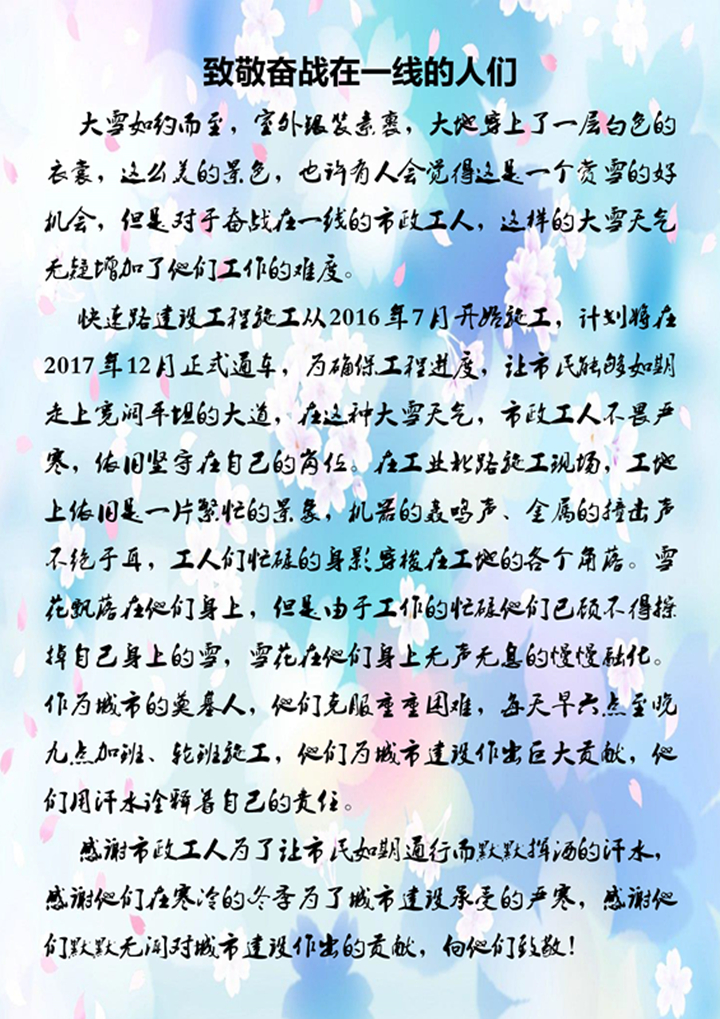 致敬奋战在一线的人们
大雪如约而至，室外银装素裹，大地穿上了一层白色的
衣裳，这么美的景色，也许有人会觉得这是一个赏雪的好
机会，但是对于奋战在一线的市政工人，这样的大雪天气
无疑增加了他们工作的难度。
快速路建设工程施工从2016年7月开始施工，计划将在
2017年12月正式通车，为确保工程进度，让市民能够如期
走上宽阔平坦的大道，在这种大雪天气，市政工人不畏严
寒，依旧坚守在自己的岗位。在工业北路施工现场，工地
上依旧是一片繁忙的景象，机器的轰鸣声、金属的撞击声
不绝于耳，工人们忙碌的身影穿梭在工地的各个角落。雪
花飘落在他们身上，但是由于工作的忙碌他们已顾不得擦
掉自己身上的雪，雪花在他们身上无声无息的慢慢融化。
作为城市的奠基人，他们克服重重困难，每天早六点至晚
九点加班、轮班施工，他们为城市建设作出巨大贡献，他
们用汗水诠释着自己的责任。
感谢市政工人为了让市民如期通行而默默挥洒的汗水，
感谢他们在寒冷的冬季为了城市建设承受的严寒，感谢他
们默默无闻对城市建设作出的贡献，向他们致敬！